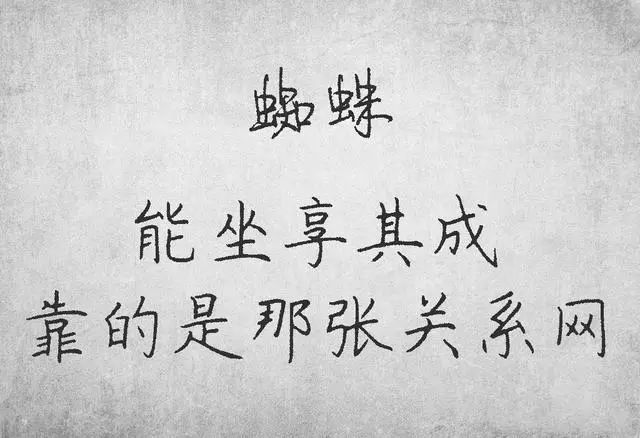 蜘蛛
能坐享其成
靠的是那张关系网